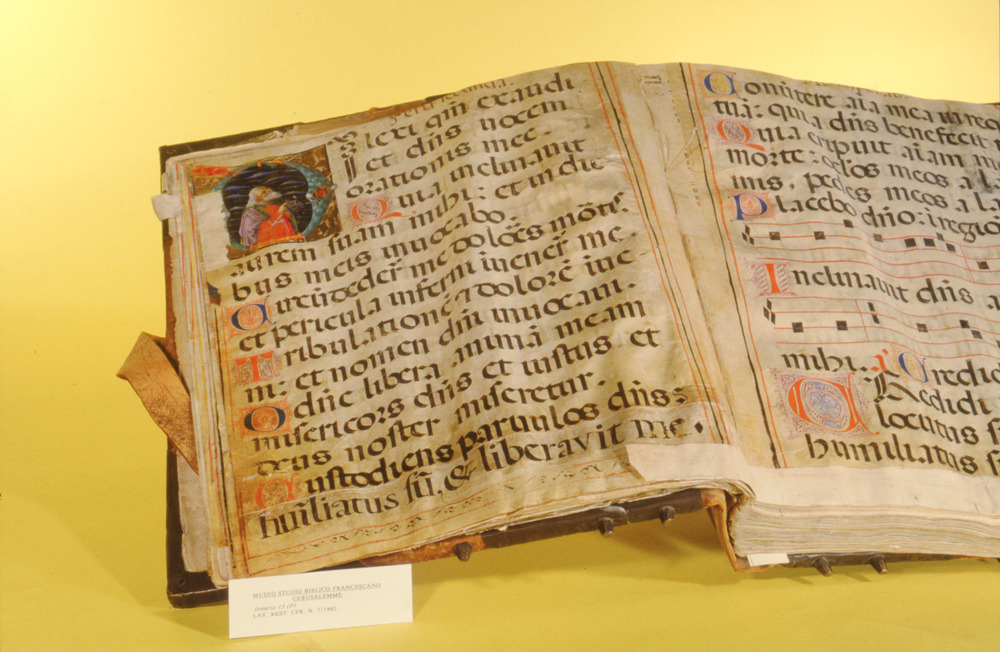 Dilexi qm̄ exaudi
et dn̄s vocem
orationis mee
Quia inclinauit
aurem suam mihi: et in die
bus meis inuocabo.
Circūdeder̄ me dolōes mōtis:
et pericula inferni inuener̄ me.
Tribulationē & dolorē iue-
ni: et nomen dn̄i inuocaui.
O dn̄e libera animā meam
misericors dn̄s et iustus et
deus noster miseretur.
Custodiens paruulos dn̄s:
hūiliatus sū, & liberavit me.
Conūtere aīa mea in req
tuā: quia dn̄s benefecit
Quia eripuit aīam m
morte: oc̄los meos a l
mis, pedes meos a la
Placebo dn̄o: i regio
Inclinauit dn̄s a
mihi. Credid
Redidi
locutus s
humiliatus s
MUSEO STUDIO BIBLICO FRANCESCANO
GERUSALEMME
13 (?)
LAV. REST. CFR. N. 7/1992